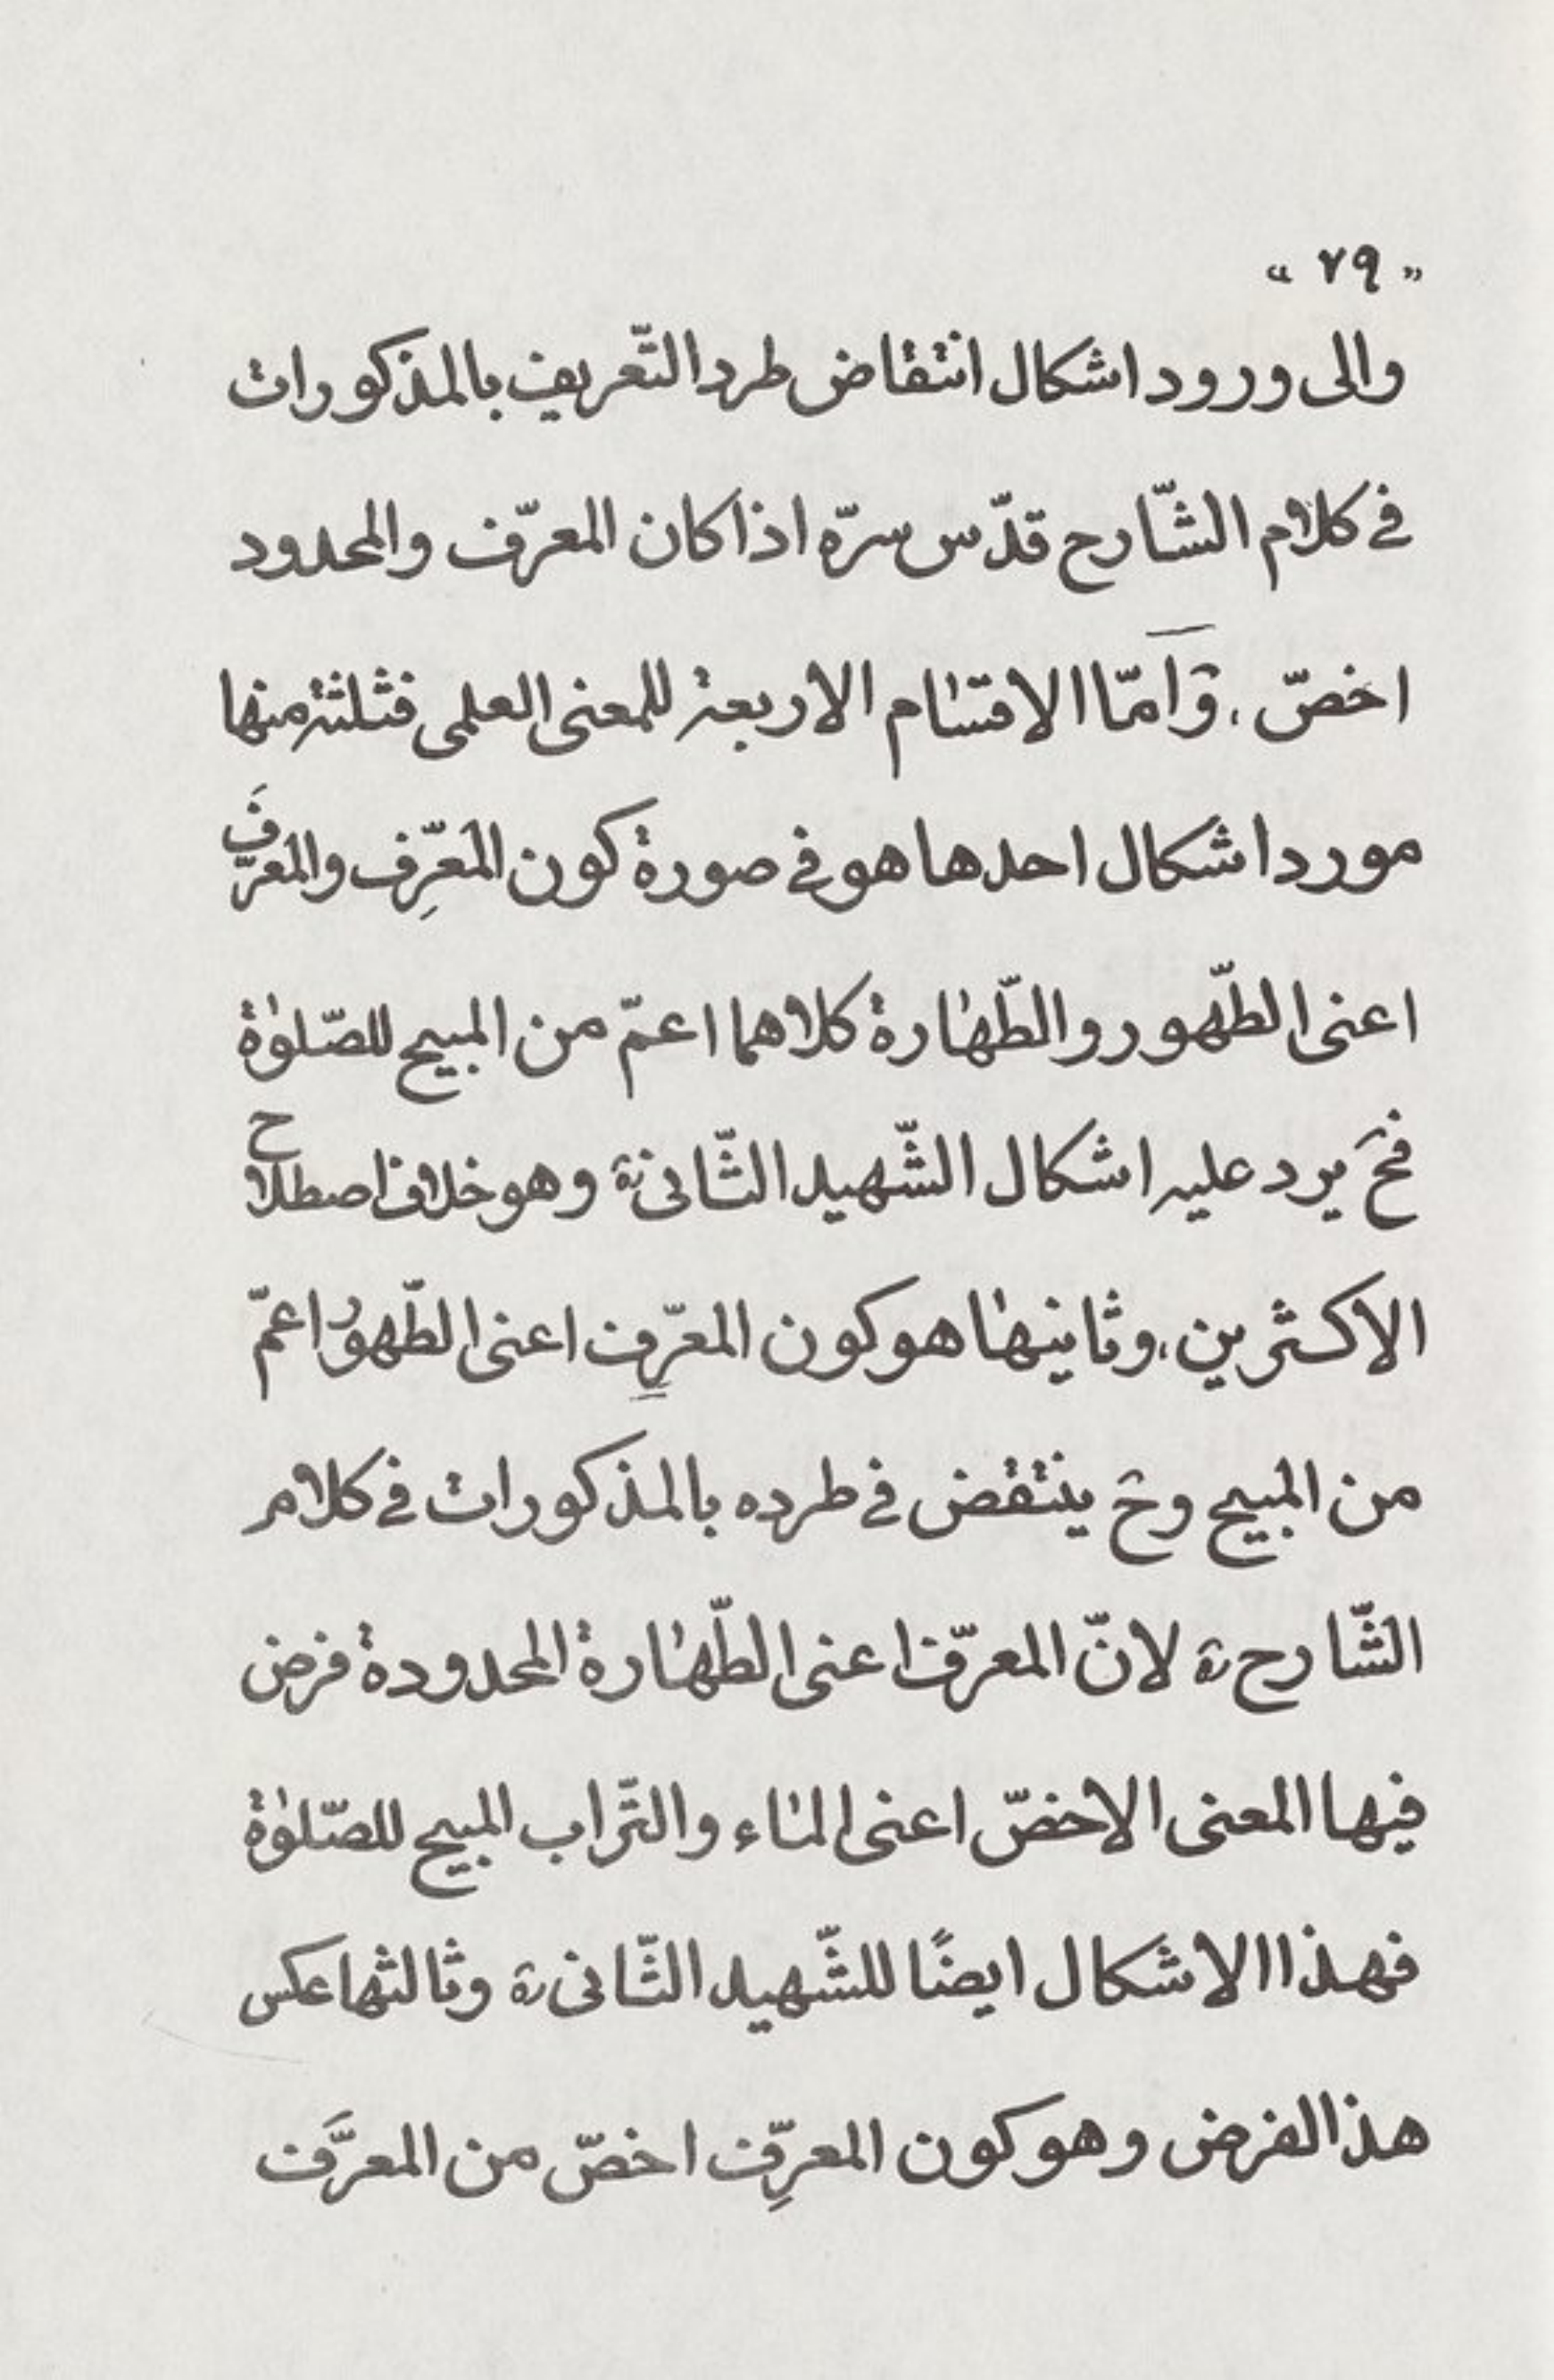 « ٧٩ »
والى ورود اشكال انتقاض طرد التّعريف بالمذكورات
فى كلام الشّارح قدّس سرّه اذا كان المعرّف والمحدود
اخصّ ، وَامّا الاقسٰام الاربعة للمعنى العلمى فثلثة منها
مورد اشكال احدها هو فى صورة كون المَعرِّف والمَعرَّفَ
اعنى الطّهور والطّهٰارة كلاهما اعمّ من المبيح للصّلوٰة
فحَ يرد عليه اشكال الشّهيد الثّانى ره وهو خلاف اصطلاح
الاكثرين، وثانيهٰا هو كون المعرِّف اعنى الطّهور اعمّ
من المبيح وحَ ينتقض فى طرده بالمذكورات فى كلام
الشّارح ره لانّ المعرّف اعنى الطّهٰارة المحدودة فرض
فيها المعنى الاخصّ اعنى المٰاء والتّراب المبيح للصّلوٰة
فهذا الاشكال ايضًا للشّهيد الثّانى ره وثالثها عكس
هذا الفرض وهو كون المعرِّف اخصّ من المعرَّف